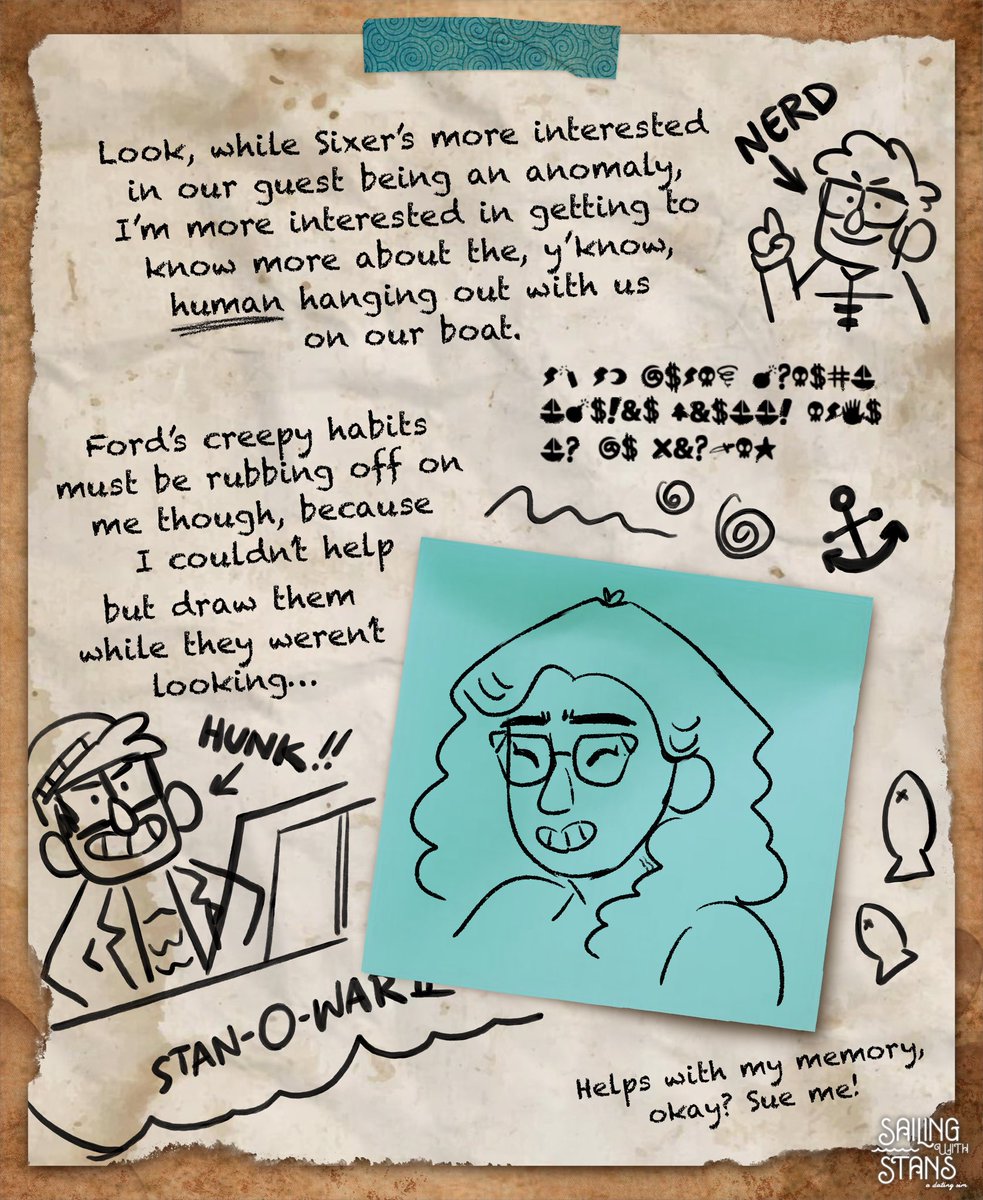 Look, while Sixer's more interested
in our guest being an anomaly,
I'm more interested in getting to
know more about the, y'know,
human hanging out with us
on our boat.
NERD
Ford's creepy habits
must be rubbing off on
me though, because
I couldn't help
but draw them
while they weren't
looking...
HUNK!!
STAN-O-WAR II
Helps with my memory,
okay? Sue me!
SAILING
WITH
STANS
a dating sim